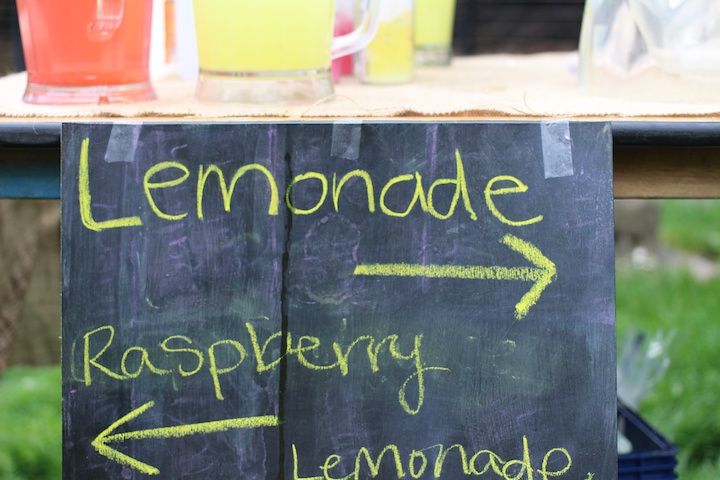 Lemonade
Raspberry
Lemonade